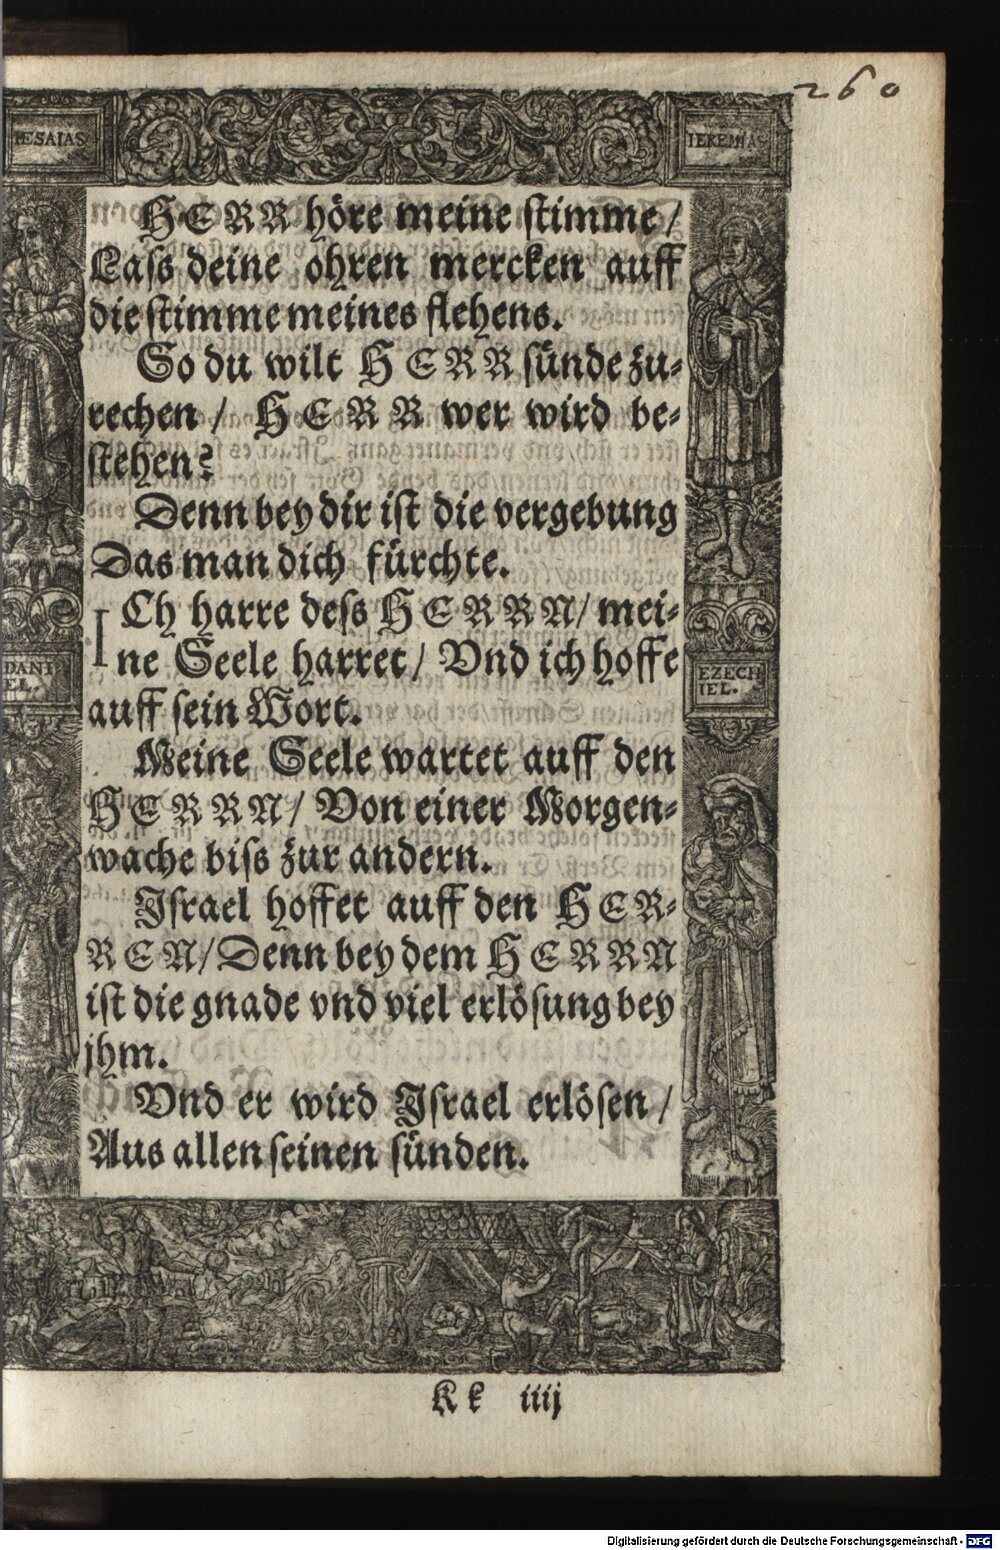 260
IESAIAS
IEREMIAS
HERR höre meine stimme /
Lass deine ohren mercken auff
die stimme meines flehens.
So du wilt HERR sünde zu-
rechen / HERR wer wird be-
stehen?
Denn bey dir ist die vergebung
Das man dich fürchte.
ICh harre dess HERRN / mei-
ne Seele harret / Vnd ich hoffe
auff sein Wort.
Meine Seele wartet auff den
HERRN / Von einer Morgen-
wache biss zur andern.
Israel hoffet auff den HER-
REN / Denn bey dem HERRN
ist die gnade vnd viel erlösung bey
jhm.
Vnd er wird Israel erlösen /
Aus allen seinen sünden.
DANI
EL.
EZECH
IEL.
Kk iiij
Digitalisierung gefördert durch die Deutsche Forschungsgemeinschaft - DFG